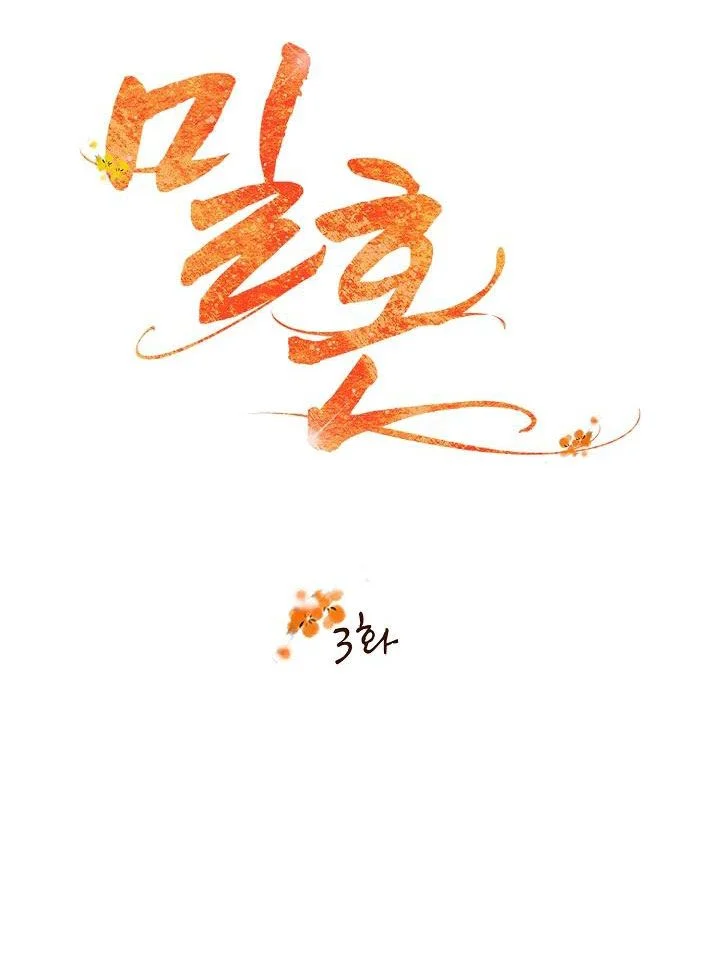 밀혼
3화